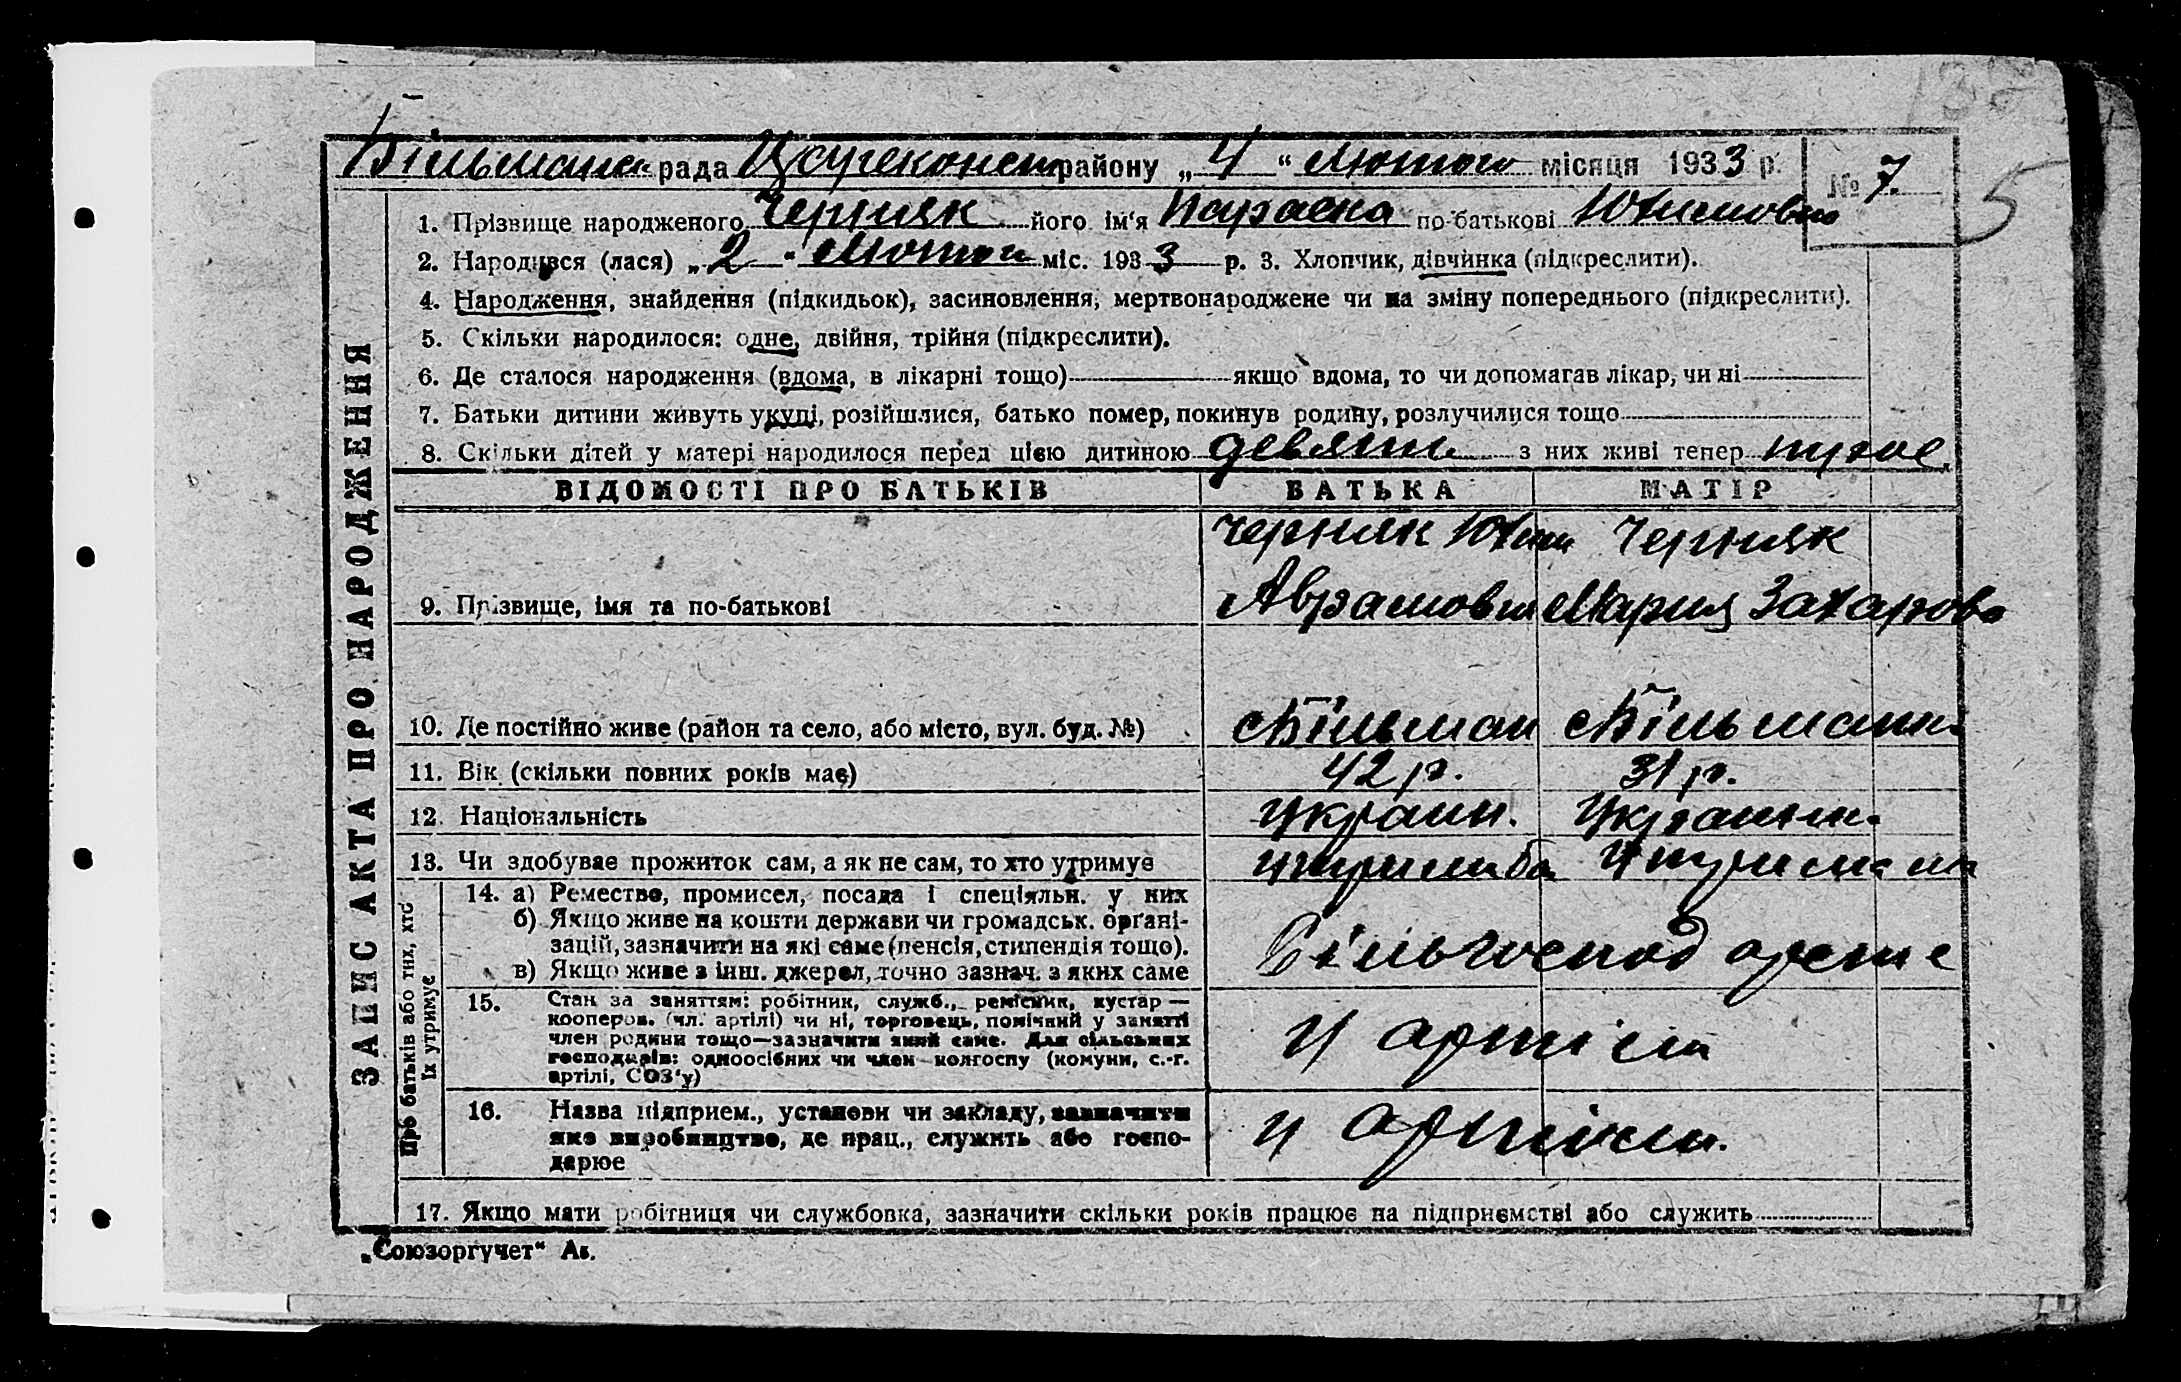 Більманська рада Царекконст району „4“ лютого місяця 1933 р. № 7.
5
1. Прізвище народженого Черняк його ім'я Параска по-батькові Юхимовна
2. Народився (лася) „2“ лютого міс. 1933 р. 3. Хлопчик, дівчинка (підкреслити).
4. Народження, знайдення (підкидьок), засиновлення, мертвонароджене чи на зміну попереднього (підкреслити).
5. Скільки народилося: одне, двійня, трійня (підкреслити).
6. Де сталося народження (вдома, в лікарні тощо) якщо вдома, то чи допомагав лікар, чи ні
7. Батьки дитини живуть укупі, розійшлися, батько помер, покинув родину, розлучилися тощо
8. Скільки дітей у матері народилося перед цією дитиною девять з них живі тепер
ВІДОМОСТІ ПРО БАТЬКІВ БАТЬКА МАТІР
Черняк Юхим Черняк
9. Прізвище, імя та по-батькові Аврамович Мария Захарова
10. Де постійно живе (район та село, або місто, вул. буд. №) Більман Більманка
11. Вік (скільки повних років має) 42 р. 31 р.
12. Національність Украин. Украинка
13. Чи здобуває прожиток сам, а як не сам, то хто утримує
14. а) Ремество, промисел, посада і спеціяльн. у них
б) Якщо живе на кошти держави чи громадськ. орґані-
зацій, зазначити на які саме (пенсія, стипендія тощо).
в) Якщо живе з інш. джерел, точно зазнач. з яких саме
Сільгосподарстве
15. Стан за заняттям: робітник, служб., ремісник, кустар —
кооперов. (чл. артілі) чи ні, торговець, помічний у занятті
член родини тощо—зазначити який саме. Для сільських
господарів: одноосібних чи член колгоспу (комуни, с.-г.
артілі, СОЗ'у)
У артілі
16. Назва підприєм., установи чи закладу, зазначити
яке виробництво, де прац., служить або госпо-
дарює
У артіли.
17. Якщо мати робітниця чи службовка, зазначити скільки років працює на підприємстві або служить
ЗАПИС АКТА ПРО НАРОДЖЕННЯ
Про батьків або тих, хто
їх утримує
„Союзоргучет“ Аз.